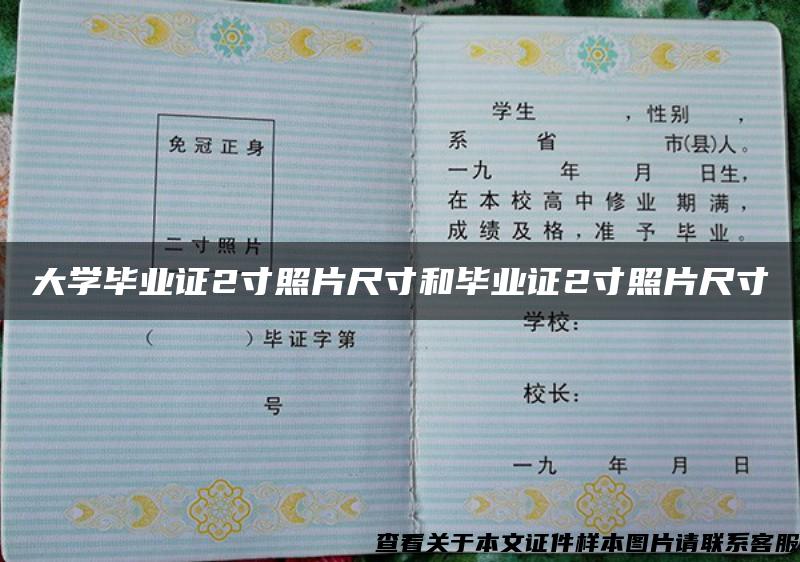 免冠正身
二寸照片
（ ）毕证字第
号
学生 ，性别 ，
系 省 市(县)人。
一九 年 月 日生，
在本校高中修业 期满，
成绩及格，准予毕业。
大学毕业证2寸照片尺寸和毕业证2寸照片尺寸
学校：
校长：
一九 年 月 日
查看关于本文证件样本图片请联系客服